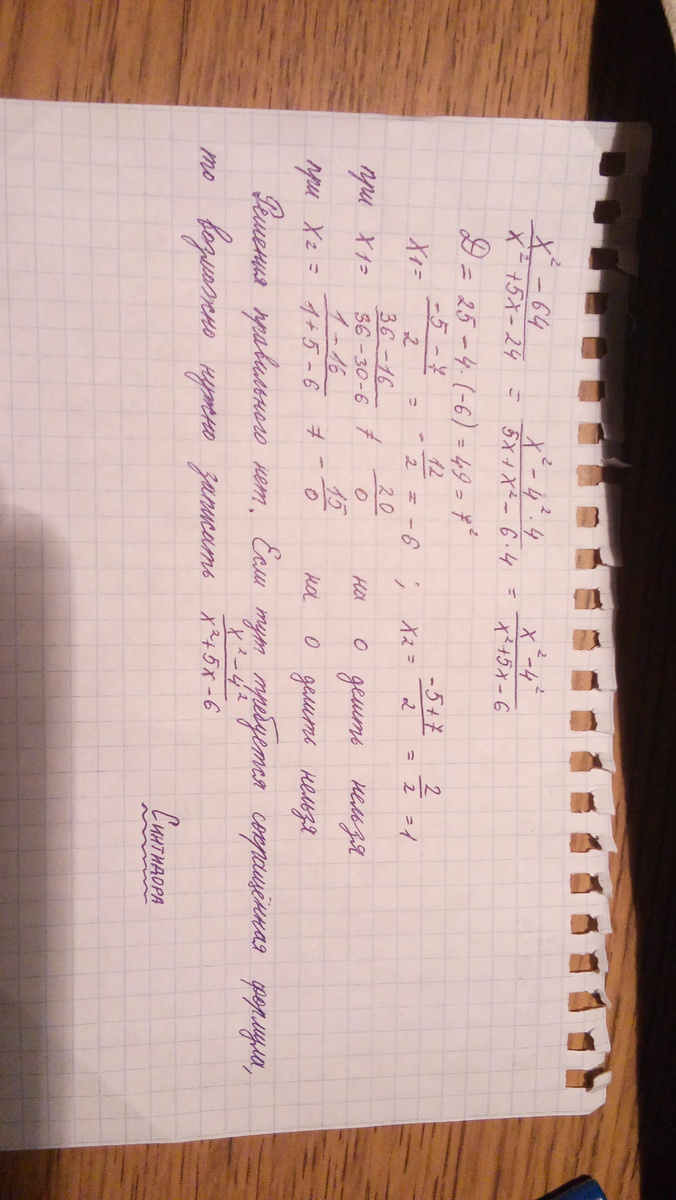 x² - 64 / x² + 5x - 24 = x² - 4² · 4 / 5x + x² - 6 · 4 = x² - 4² / x² + 5x - 6
D = 25 - 4 · (-6) = 49 = 7²
x1 = -5 - 7 / 2 = - 12 / 2 = -6 ; x2 = -5 + 7 / 2 = 2 / 2 = 1
при x1 = 36 - 16 / 36 - 30 - 6 ⁊ 20 / 0 на 0 делить нельзя
при x2 = 1 - 16 / 1 + 5 - 6 ⁊ - 15 / 0 на 0 делить нельзя
Решения правильного нет. Если тут требуется сокращённая формула,
то возможно нужно записать x² - 4² / x² + 5x - 6
Синтидора